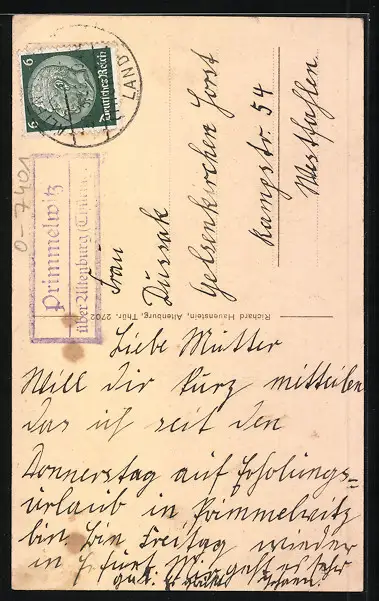 6 6
Deutsches Reich
LAND
Primmelwitz
über Altenburg (Thür.)
0-7401
Frau
Dussak
Gelsenkirchen Horst
Kampstr. 54
Westfahlen
Richard Hauenstein, Altenburg, Thür. 2702
Liebe Mutter
Will dir kurz mitteilen
das ich seit den
Donnerstag auf Erholungs=
urlaub in Primmelwitz
bin. Bin Freitag wieder
in Erfurt. Mir geht es sehr
gut.